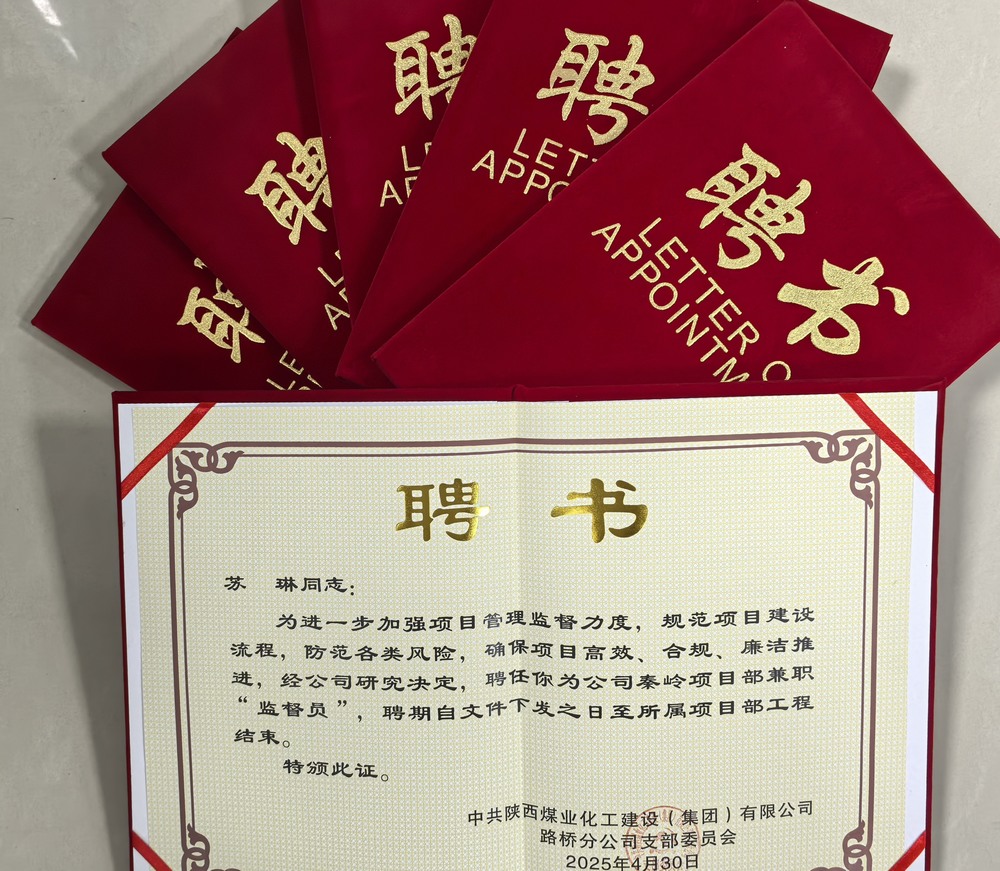 聘
聘
LET
APPO
聘
聘
聘书
LETTER O
APPOINTM
聘书
苏 琳同志：
为进一步加强项目管理监督力度，规范项目建设
流程，防范各类风险，确保项目高效、合规、廉洁推
进，经公司研究决定，聘任你为公司秦岭项目部兼职
“监督员”，聘期自文件下发之日至所属项目部工程
结束。
特颁此证。
中共陕西煤业化工建设（集团）有限公司
路桥分公司支部委员会
2025年4月30日